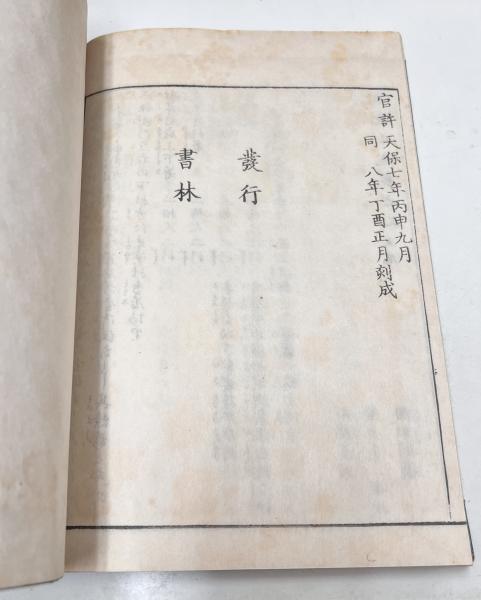 官許 天保七年丙申九月
同 八年丁酉正月刻成
發行
書林